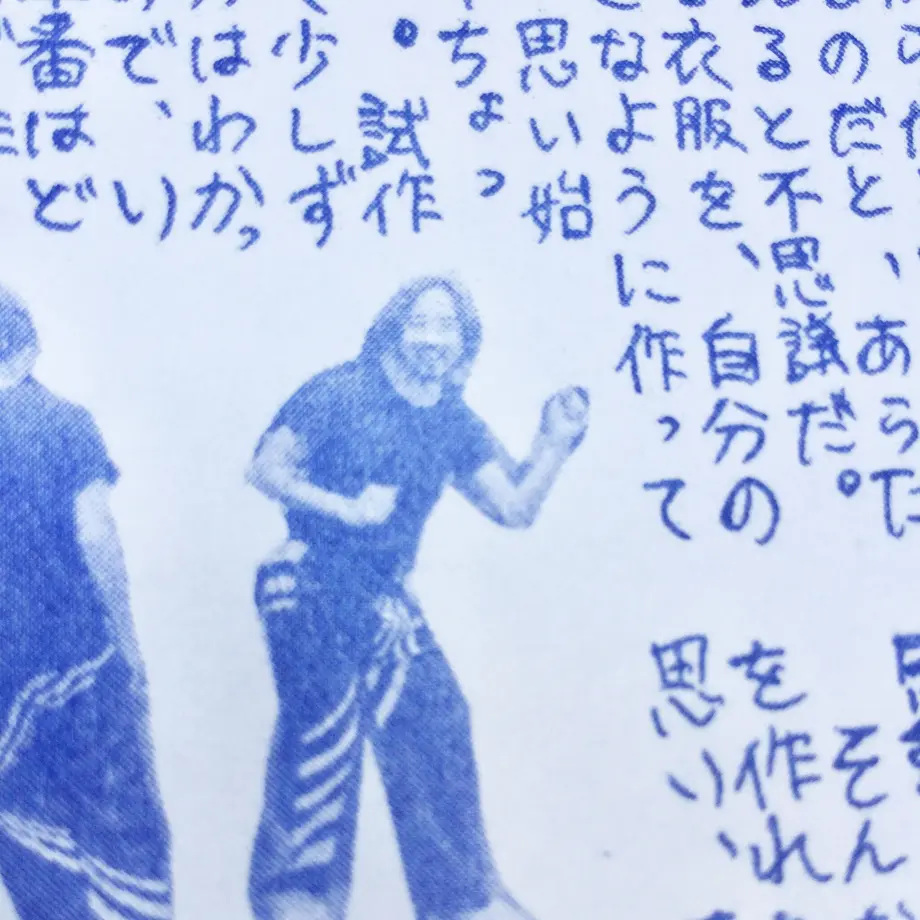 のだと、あらた
ると不思議だ。
衣服を、自分の
なように作って
思い始
ちょっ
。試作
少しず
はわかっ
で、い
番はど
そん
を作れ
思い、